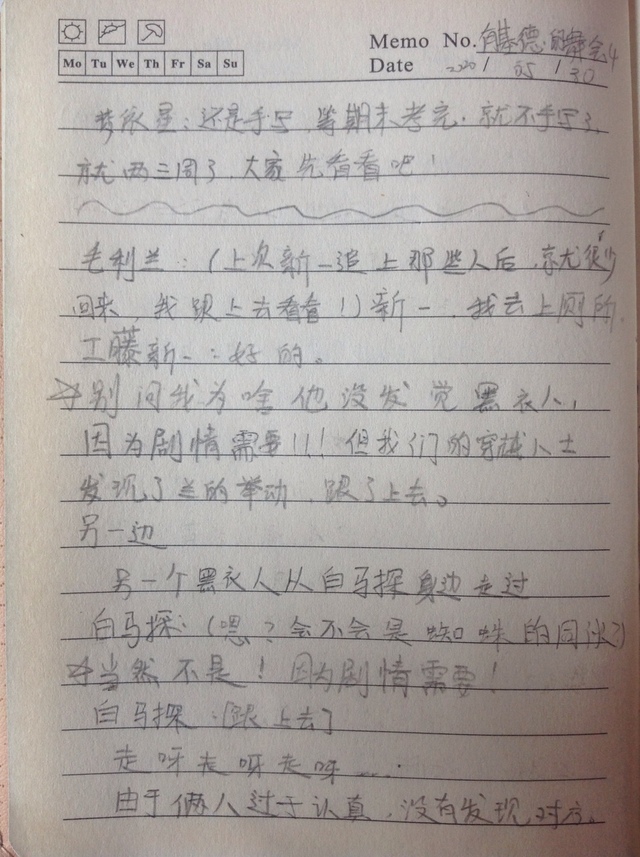 Memo No. 有基德的舞会4
Mo Tu We Th Fr Sa Su
Date 2020 / 05 / 30
梦依星：还是手写，等期末考完，就不手写了，
就两三周了，大家先看看吧！
毛利兰：（上次新一追上那些人后，就很少
回来，我跟上去看看！）新一，我去上厕所，
工藤新一：好的。
☆别问我为啥他没发觉黑衣人，
因为剧情需要!!!但我们的穿越人士
发现了兰的举动，跟了上去。
另一边
另一个黑衣人从白马探身边走过
白马探：（嗯？会不会是蜘蛛的同伙？）
☆当然不是！因为剧情需要！
白马探：[跟上去]
走呀走呀走呀……
由于俩人过于认真，没有发现对方。